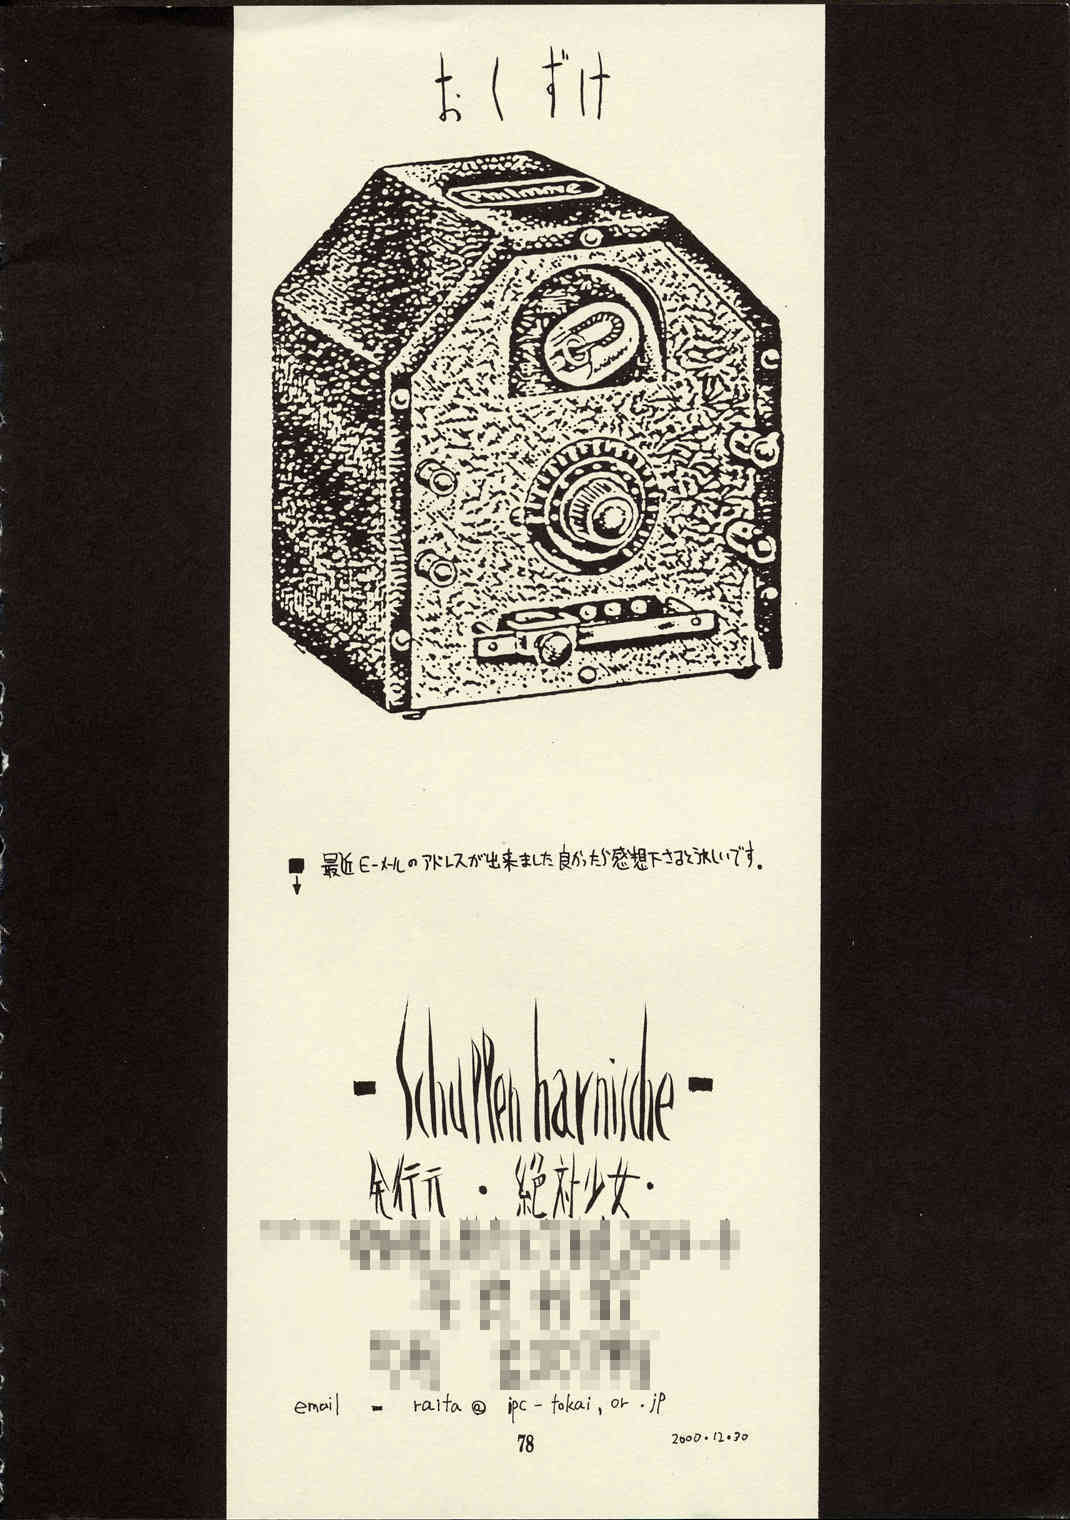 おくずけ
最近E-メールのアドレスが出来ました良かったら感想下さるとうれしいです。
- Schuppen harnische -
発行元・絶対少女・
email - raita@ipc-tokai,or.jp
78
2000.12.30